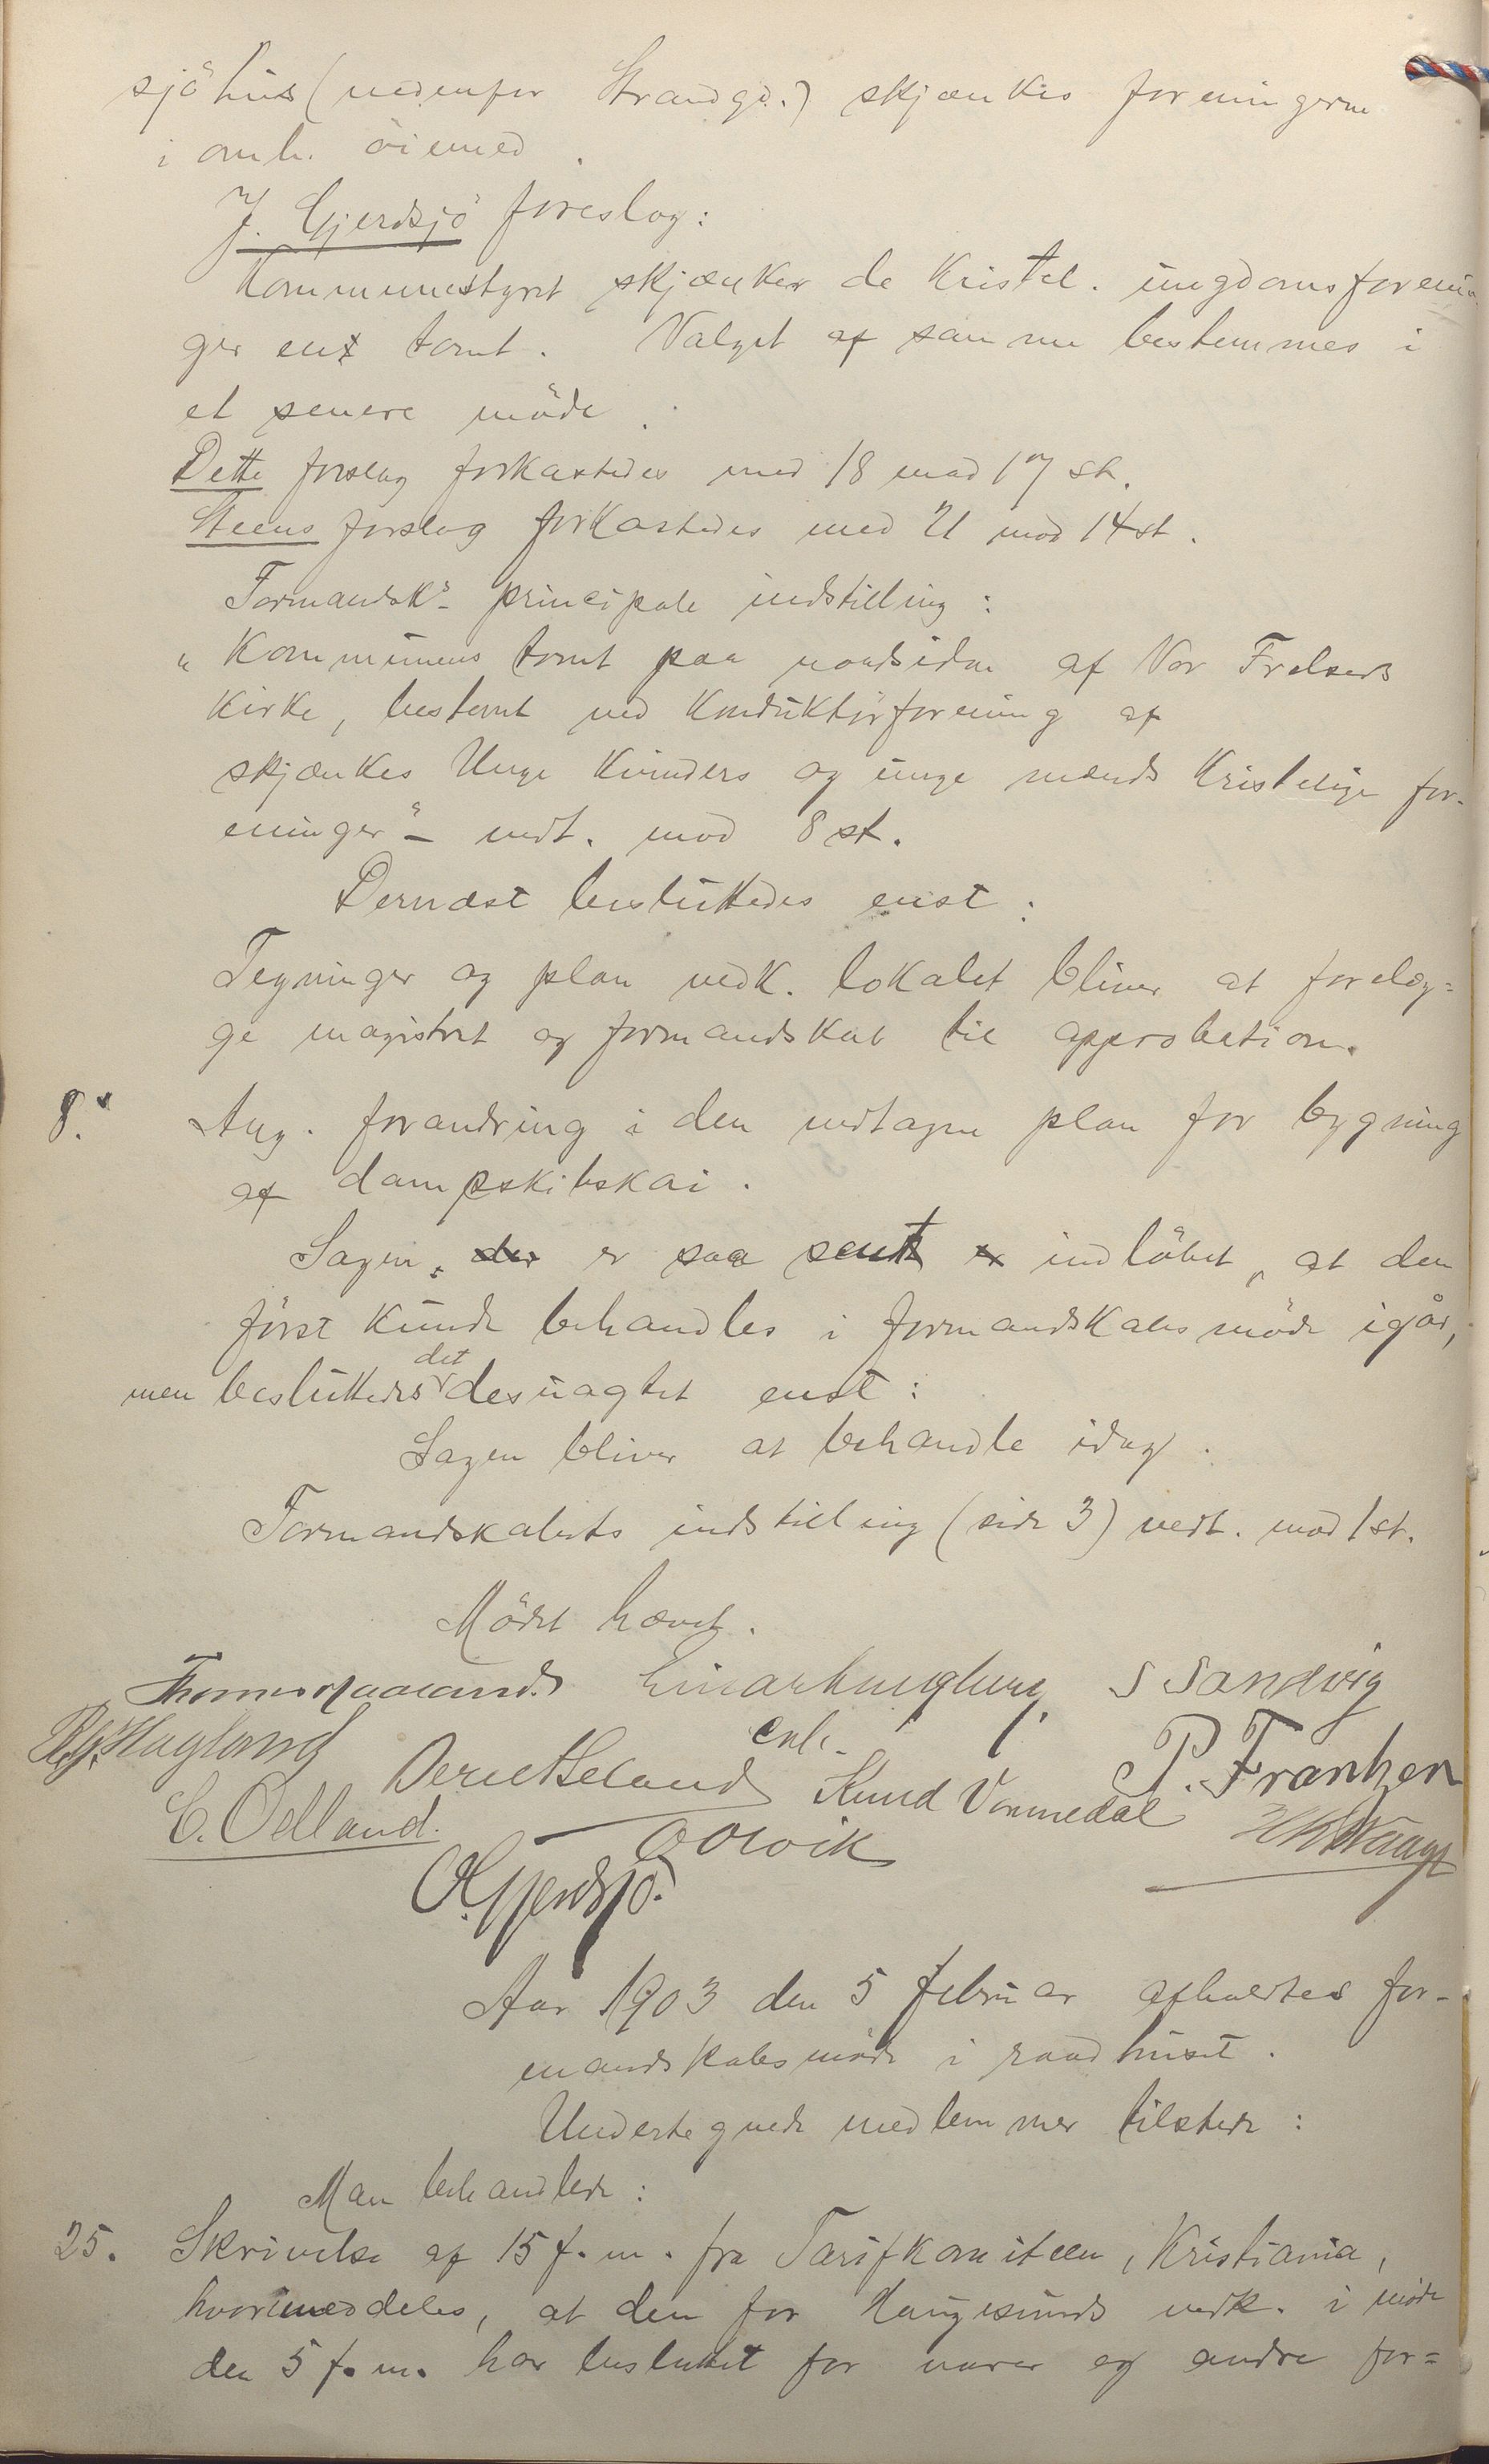 sjöhus (nedenfor Strandgd.) skjænkes foreningerne
i omh. öiemed.
J. Gjerdsjö foreslog:
Kommunestyret skjænker de Kristel. ungdomsforenin
ger en tomt. Valget af samme bestemmes i
et senere möde.
Dette forslag forkastedes med 18 mod 17 st.
Steens forslag forkastedes med 21 mod 14 st.
Formandsk's principale indstilling:
"Kommunens tomt paa nordsiden af Vor Frelsers
Kirke, bestemt ved Konduktörforening af
skjænkes Unge Kvinders og unge mænds Kristelige for-
eninger" – vedt. mod 8 st.
Dernæst besluttedes enst:
Tegninger og plan vedk. lokalet bliver at forelæg=
ge magistrat og formandskab til approbation.
8. Ang. forandring i den vedtagne plan for bygning
af dampskibskai.
Sagen er saa sent indlöbet, at den
först kunde behandles i formandskabsmöde igår,
men besluttedes det desuagtet enst:
Sagen bliver at behandle idag.
Formandskabets indstilling (side 3) vedt. mod 1 st.
Mödet hævet.
S Sandvig
Haugland
enb.
P. Frantzen
Knud Vormedal
C. Odland.
O Olvik
O. Gjerdsjö.
Aar 1903 den 5 februar afholdtes for-
mandskabsmöde i raadhuset.
Undertegnede medlemmer tilstede:
Man behandlede:
25. Skrivelse af 15 f.m. fra Tarifkomiteen, Kristiania,
hvori meddeles, at den for Haugesunds vedk. i möde
den 5 f.m. har besluttet for varer og andre for=